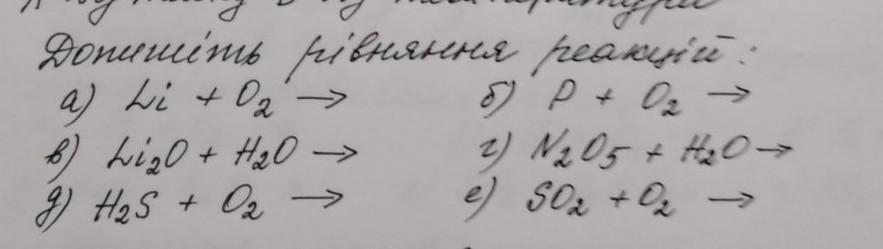 Допишіть рівняння реакцій:
а) Li + O₂ → б) P + O₂ →
в) Li₂O + H₂O → г) N₂O₅ + H₂O →
д) H₂S + O₂ → е) SO₂ + O₂ →